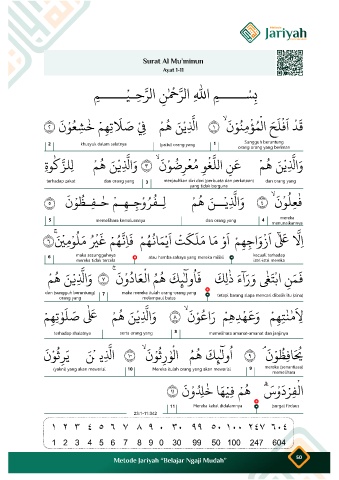 Jariyah
Surat Al Mu'minun
Ayat 1-11
بِسْمِ اللهِ الرَّحْمٰنِ الرَّحِيْمِ
قَدْ اَفْلَحَ الْمُؤْمِنُوْنَ ۙ ١ الَّذِيْنَ هُمْ فِيْ صَلَاتِهِمْ خٰشِعُوْنَ ٢
Sungguh beruntung orang-orang yang beriman 1 (yaitu) orang yang khusyuk dalam salatnya 2
وَالَّذِيْنَ هُمْ عَنِ اللَّغْوِ مُعْرِضُوْنَ ۙ ٣ وَالَّذِيْنَ هُمْ لِلزَّكٰوةِ
dan orang yang 3 dan orang yang terhadap zakat
فٰعِلُوْنَ ۙ ٤ وَالَّذِيْنَ هُمْ لِفُرُوْجِهِمْ حٰفِظُوْنَ ٥
mereka menunaikannya 4 dan orang yang memelihara kemaluannya 5
اِلَّا عَلٰٓى اَزْوَاجِهِمْ اَوْ مَا مَلَكَتْ اَيْمَانُهُمْ فَاِنَّهُمْ غَيْرُ مَلُوْمِيْنَ ۚ ٦
kecuali terhadap istri-istri mereka atau hamba sahaya yang mereka miliki maka sesungguhnya mereka tidak tercela 6
فَمَنِ ابْتَغٰى وَرَآءَ ذٰلِكَ فَاُولٰٓئِكَ هُمُ الْعَادُوْنَ ۚ ٧ وَالَّذِيْنَ هُمْ
maka mereka itulah orang-orang yang melampaui batas 7 dan (sungguh beruntung) orang yang
لِاَمٰنٰتِهِمْ وَعَهْدِهِمْ رَاعُوْنَ ۙ ٨ وَالَّذِيْنَ هُمْ عَلٰى صَلَوٰتِهِمْ
memelihara amanat-amanat dan janjinya 8 serta orang yang terhadap shalatnya
يُحَافِظُوْنَ ۘ ٩ اُولٰٓئِكَ هُمُ الْوٰرِثُوْنَ ۙ ١٠ الَّذِيْنَ يَرِثُوْنَ
mereka (senantiasa) memelihara 9 Mereka itulah orang yang akan mewarisi 10 (yakni) yang akan mewarisi
الْفِرْدَوْسَ ۗ هُمْ فِيْهَا خٰلِدُوْنَ ١١
(surga) Firdaus Mereka kekal didalamnya 11
23:1-11:342
١ ٢ ٣ ٤ ٥ ٦ ٧ ٨ ٩ ٠ ٣٠ ٩٩ ٥٠ ١٠٠ ٢٤٧ ٦٠٤
1 2 3 4 5 6 7 8 9 0 30 99 50 100 247 604
Metode Jariyah "Belajar Ngaji Mudah"
50